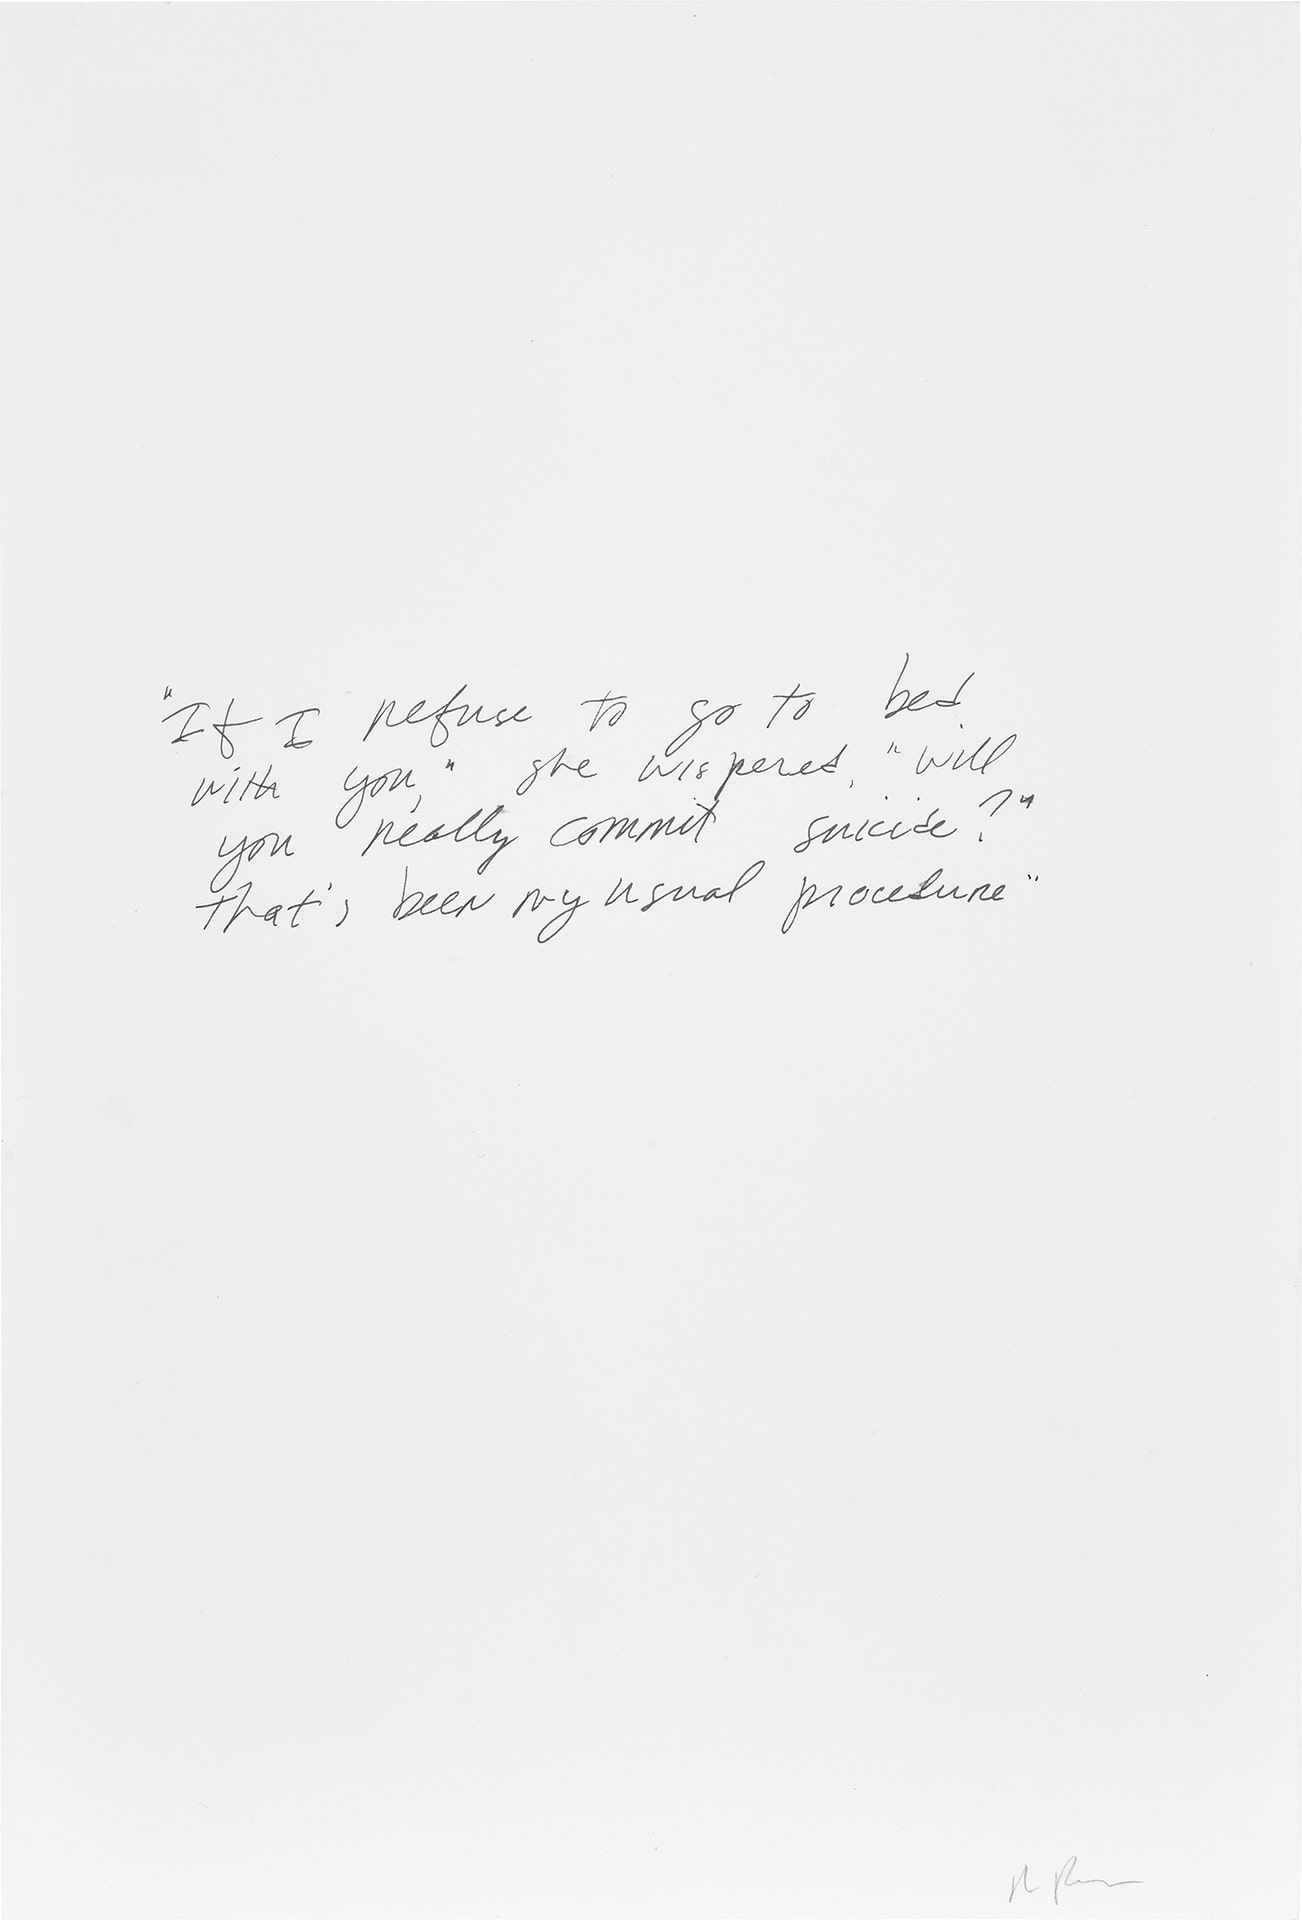 "If I refuse to go to bed
with you," she wispered, "will
you really commit suicide?"
that's been my usual procedure"